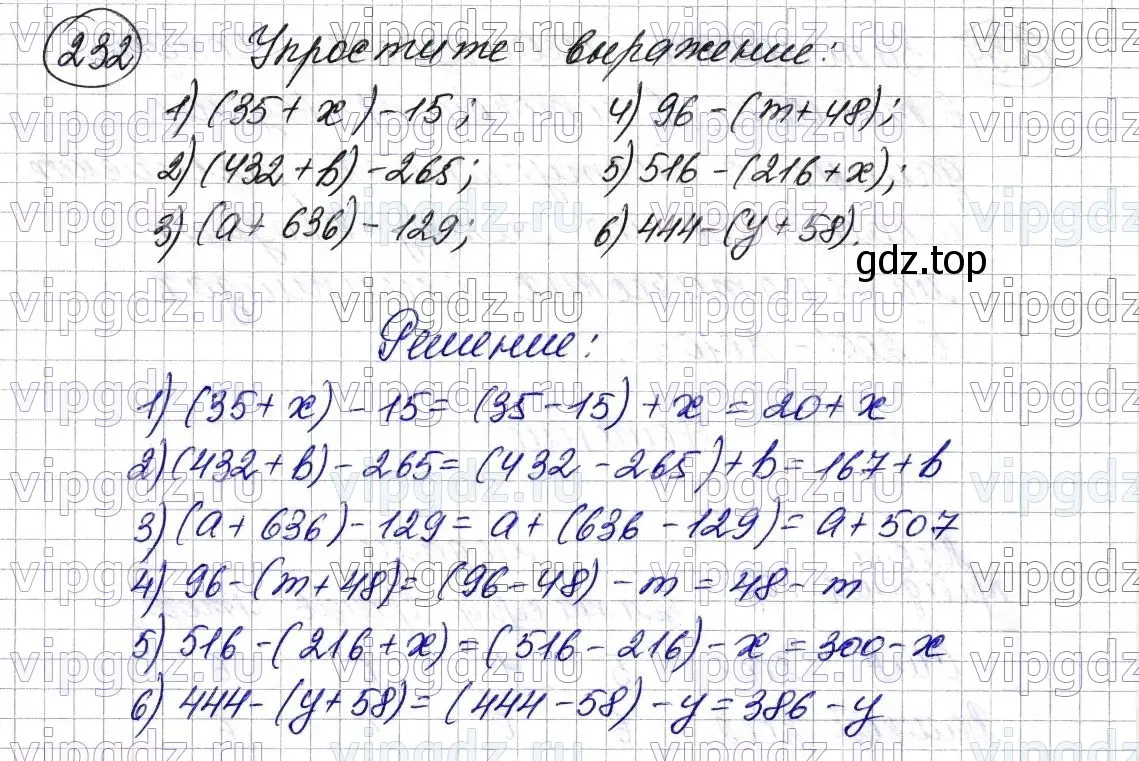 232 Упростите выражение:
1) (35 + x) - 15; 4) 96 - (m + 48);
2) (432 + b) - 265; 5) 516 - (216 + x);
3) (a + 636) - 129; 6) 444 - (y + 58).
gdz.top
Решение:
1) (35 + x) - 15 = (35 - 15) + x = 20 + x
2) (432 + b) - 265 = (432 - 265) + b = 167 + b
3) (a + 636) - 129 = a + (636 - 129) = a + 507
4) 96 - (m + 48) = (96 - 48) - m = 48 - m
5) 516 - (216 + x) = (516 - 216) - x = 300 - x
6) 444 - (y + 58) = (444 - 58) - y = 386 - y
vipgdz.ru